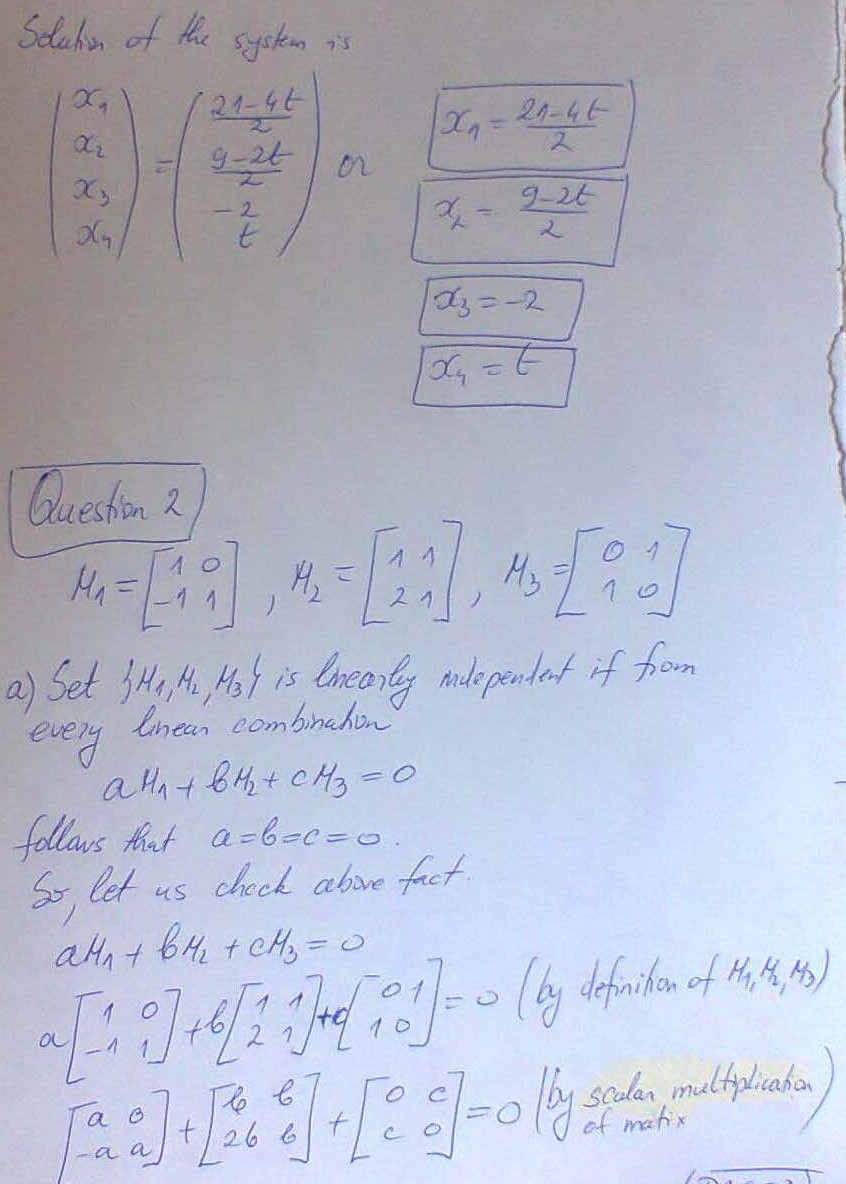 Solution of the system is
(x₁ x₂ x₃ x₄) = ((21-4t)/2 (9-2t)/2 -2 t) or
x₁ = (21-4t)/2
x₂ = (9-2t)/2
x₃ = -2
x₄ = t
Question 2
M₁ = [1 0 -1 1], M₂ = [1 1 2 1], M₃ = [0 1 1 0]
a) Set {M₁, M₂, M₃} is linearly independent if from
every linear combination
aM₁ + bM₂ + cM₃ = 0
follows that a=b=c=0.
So, let us check above fact.
aM₁ + bM₂ + cM₃ = 0
a[1 0 -1 1] + b[1 1 2 1] + c[0 1 1 0] = 0 (by definition of M₁, M₂, M₃)
[a 0 -a a] + [b b 2b b] + [0 c c 0] = 0 (by scalar multiplication
of matix)